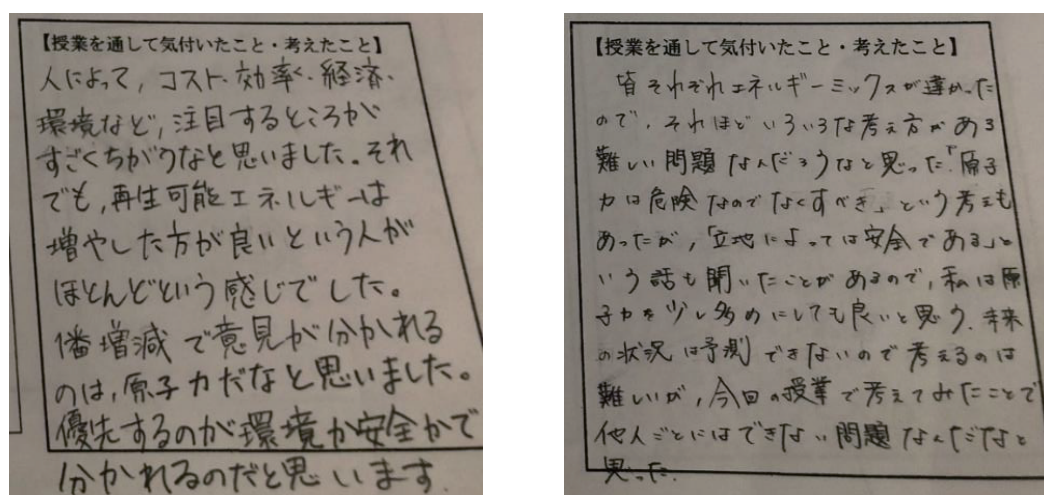 【授業を通して気付いたこと・考えたこと】
人によって，コスト・効率・経済・
環境など，注目するところが
すごくちがうなと思いました。それ
でも，再生可能エネルギーは
増やした方が良いという人が
ほとんどという感じでした。
1番増減で意見が分かれる
のは，原子力だなと思いました。
優先するのが環境か安全かで
分かれるのだと思います.
【授業を通して気付いたこと・考えたこと】
皆それぞれエネルギーミックスが違かった
ので，それほどいろいろな考え方がある
難しい問題なんだろうなと思った.「原子
力は危険なのでなくすべき」という考えも
あったが，「立地によっては安全である」と
いう話も聞いたことがあるので，私は原
子力を少し多めにしても良いと思う．未来
の状況は予測できないので考えるのは
難しいが，今回の授業で考えてみたことで
他人ごとにはできない問題なんだなと
思った.